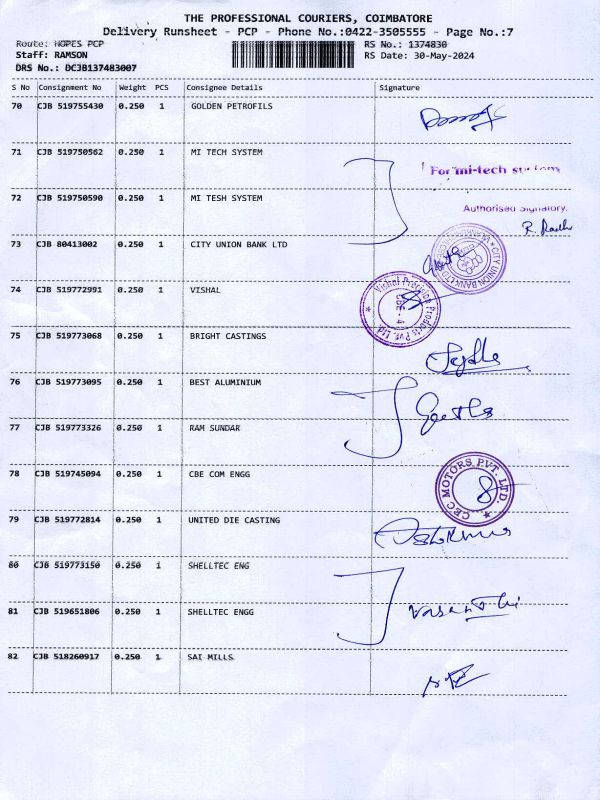 THE PROFESSIONAL COURIERS, COIMBATORE
Delivery Runsheet - PCP - Phone No.:0422-3505555 - Page No.:7
Route: HOPES PCP
RS No.: 1374830
Staff: RAMSON
RS Date: 30-May-2024
DRS No.: DCJB137483007
S No Consignment No Weight PCS Consignee Details Signature
70 CJB 519755430 0.250 1 GOLDEN PETROFILS
71 CJB 519750562 0.250 1 MI TECH SYSTEM
For mi-tech systems
72 CJB 519750590 0.250 1 MI TESH SYSTEM
Authorised Signatory.
73 CJB 80413002 0.250 1 CITY UNION BANK LTD
CITY UNION BANK LTD
74 CJB 519772991 0.250 1 VISHAL
Vishal Precision Products Pvt. Ltd.
CBE - 4
75 CJB 519773068 0.250 1 BRIGHT CASTINGS
76 CJB 519773095 0.250 1 BEST ALUMINIUM
Geetha
77 CJB 519773326 0.250 1 RAM SUNDAR
78 CJB 519745094 0.250 1 CBE COM ENGG
CEC MOTORS PVT. LTD.
79 CJB 519772814 0.250 1 UNITED DIE CASTING
80 CJB 519773150 0.250 1 SHELLTEC ENG
81 CJB 519651806 0.250 1 SHELLTEC ENGG
Vasanthi
82 CJB 518260917 0.250 1 SAI MILLS